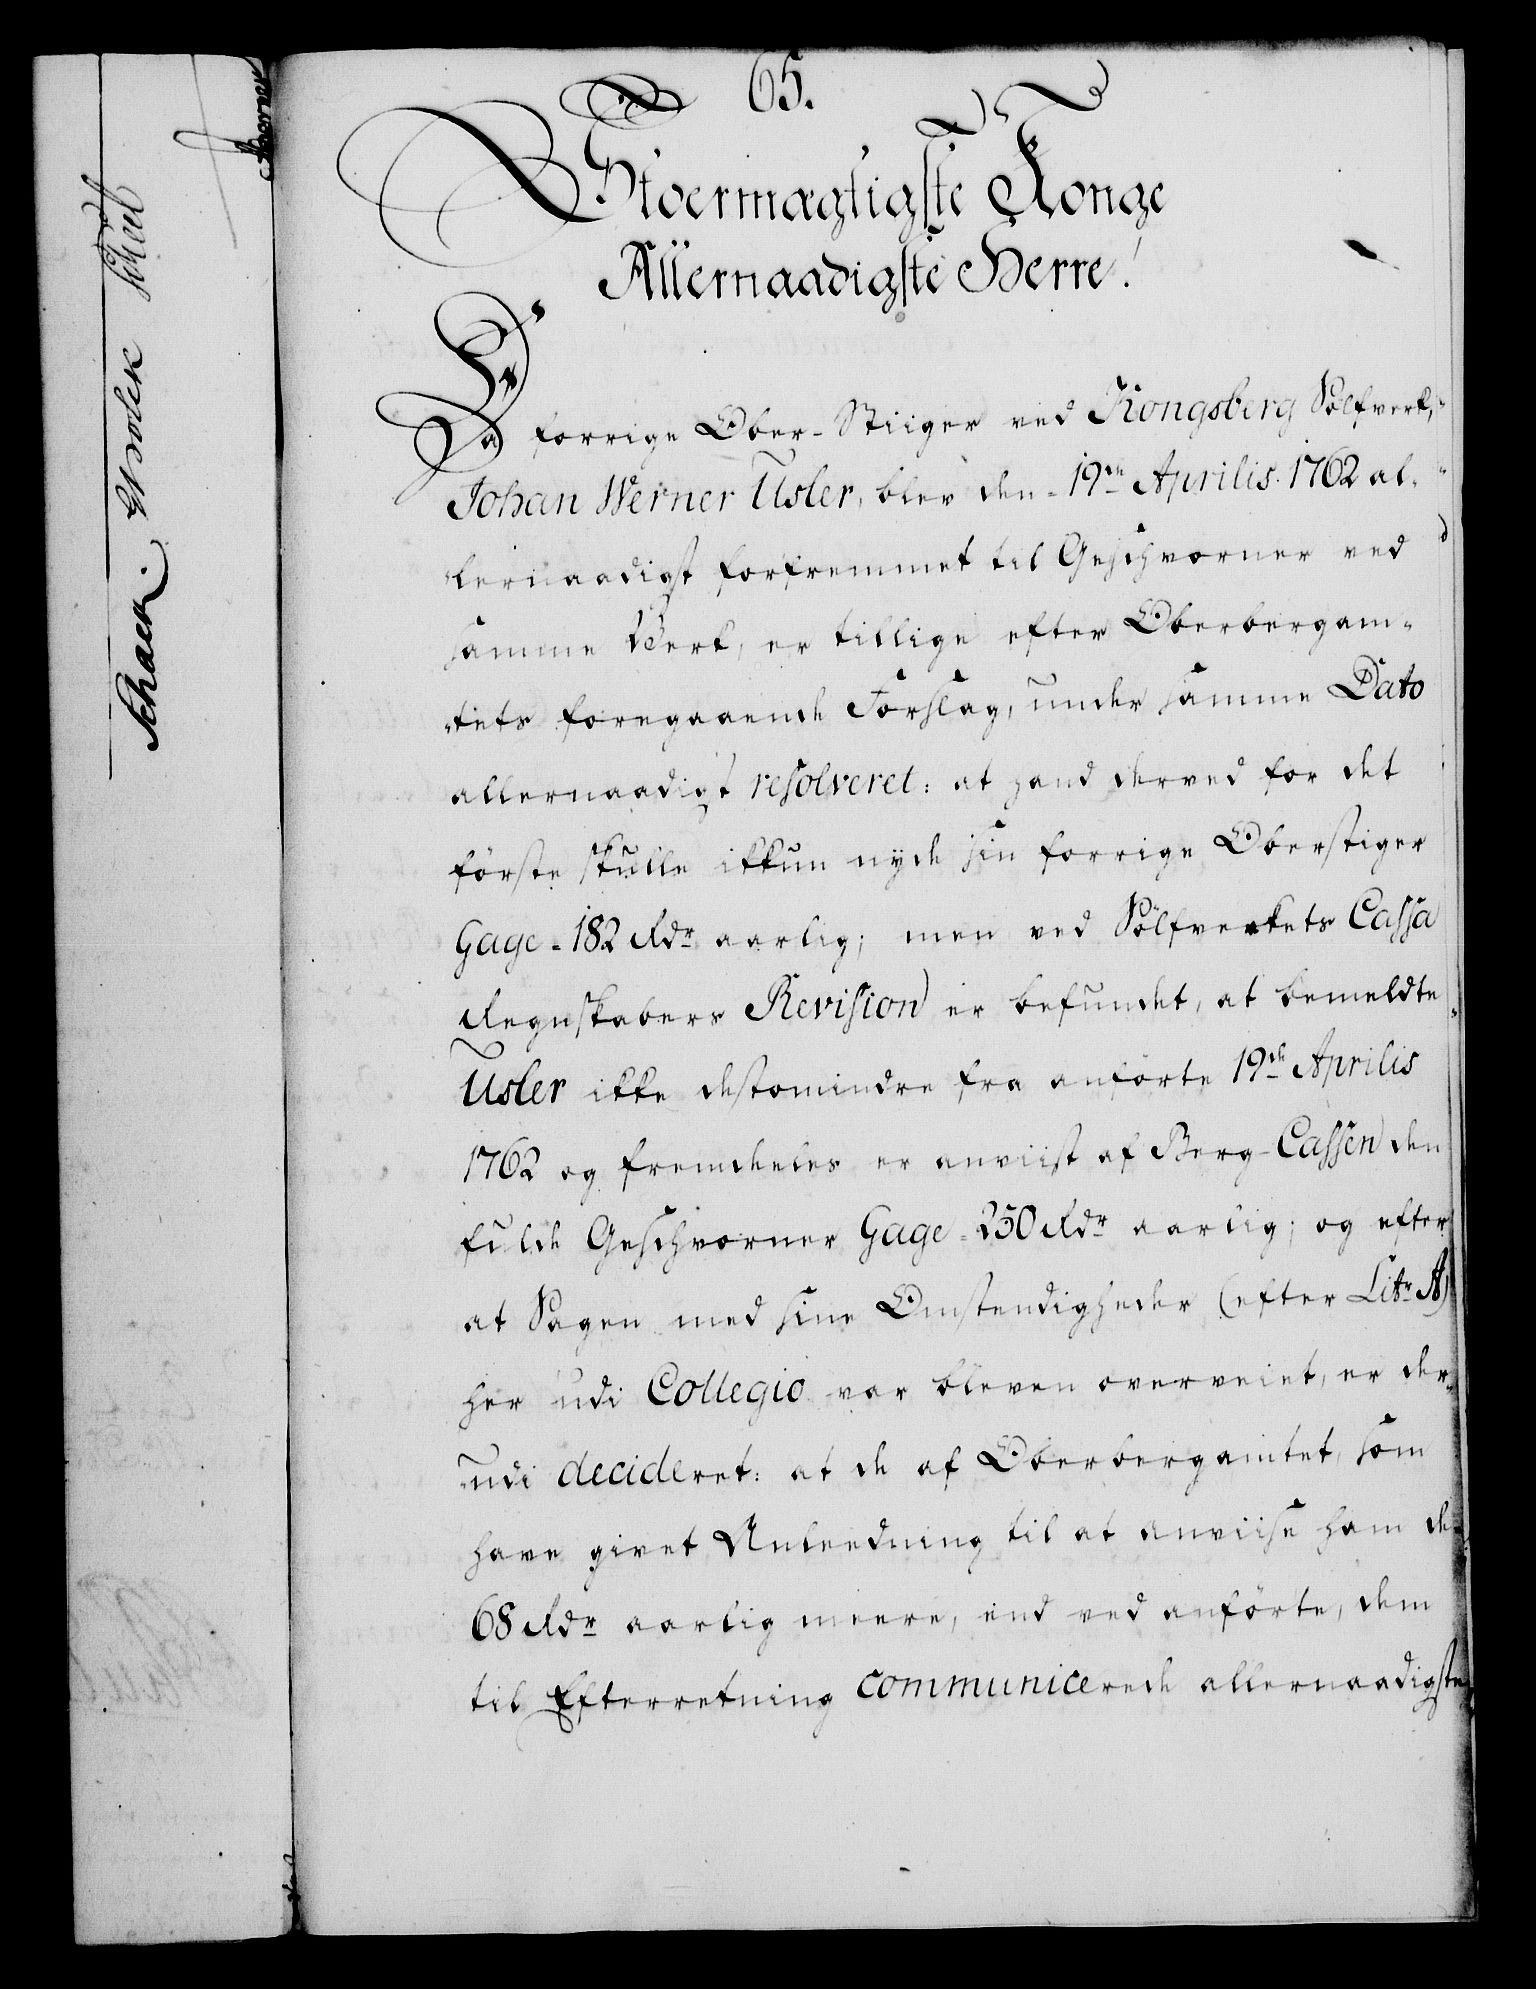 65.
Stoermægtigste Konge
Allernaadigste Herre!
Da forrige Ober-Stiiger ved Kongsberg Sölfverk,
Johan Werner Usler, blev den 19de Aprilis 1762 al-
lernaadigst forfremmet til Geschvorner ved
samme Verk, er tillige efter Oberbergam-
tets foregaaende Forslag, under samme Dato
allernaadigst resolveret: at hand derved for det
förste skulle ikkun nyde sin forrige Oberstiger
Gage - 182 Rdr aarlig; men ved Sölfverkets Cassa
Regnskabers Revision er befundet, at bemeldte
Usler ikke destomindre fra anförte 19de Aprilis
1762 og fremdeeles er anviist af Berg-Cassen den
fulde Geschvorner Gage - 250 Rdr aarlig; og efter
at Sagen med sine Omstendigheder (efter Litr A)
her udi Collegio var bleven overveiet, er der-
udi decideret: at de af Oberbergamtet, som
have givet Anleedning til at anviise ham de
68 Rdr aarlig meere, end ved anförte, dem
til Efterretning communicerede allernaadigste
Schack
Holck
Scheel